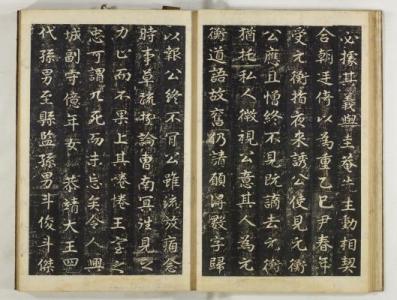 必據其義與圭菴先生動相契
合朝廷倚以為重乙巳尹春年
受元衡指夜來誘公使見元衡
公應且憎終不見既謫去元衡
猶托私人微視公意其人為元
衡道語故奮仍請願得數字歸
以報公終不肯公雖流放猶念
時事草疏極論曹南冥浩見之
力止而不果上其惓惓王室之
忠可謂九死而未忘矣令人興
城副寺億年女 恭靖大王四
代孫男至縣監孫男斗俊斗傑